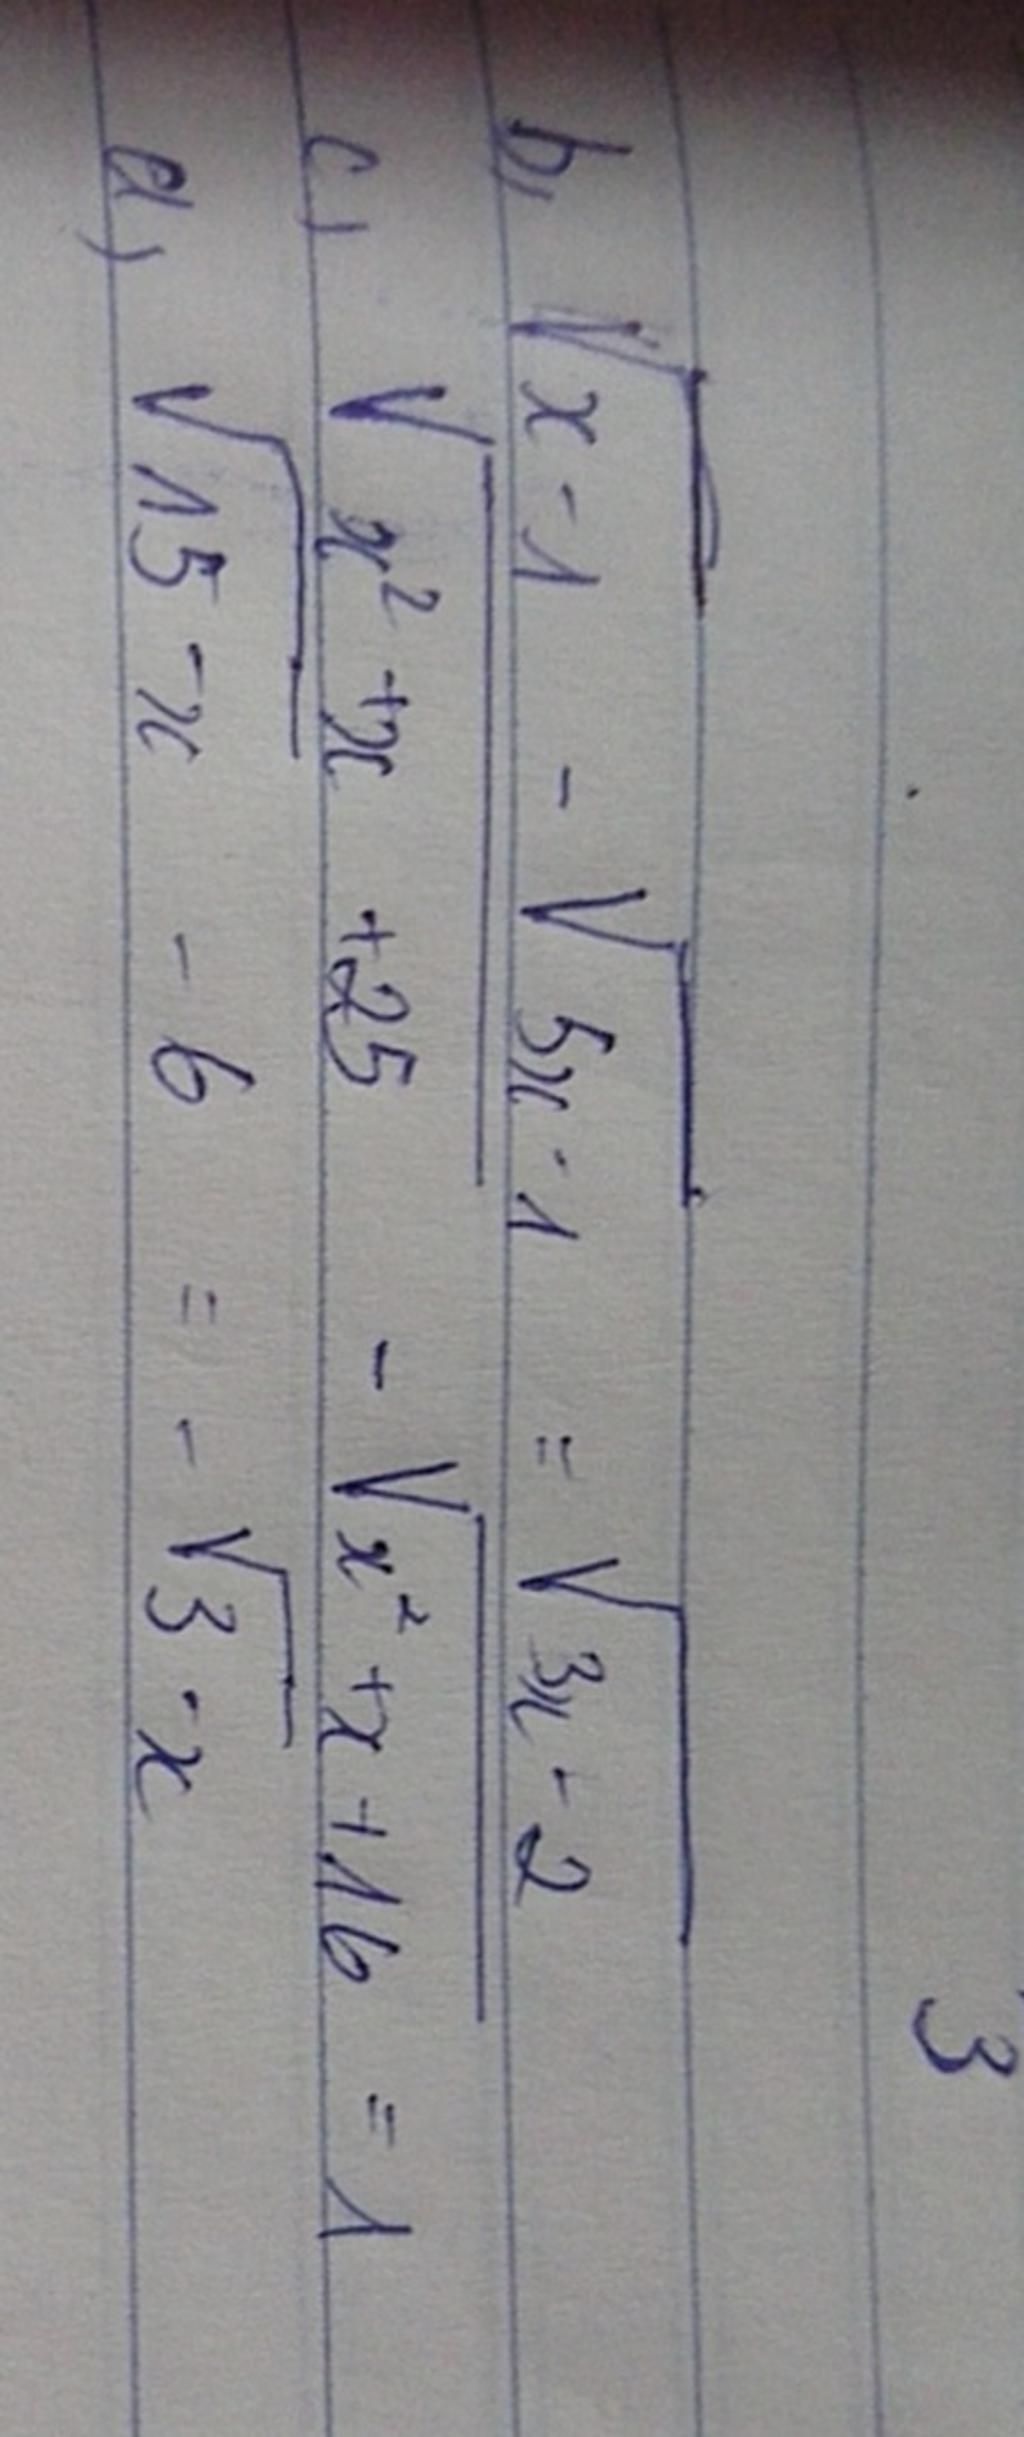 3
b, √x-1 - √5x-1 = √3x-2
c, √x² + x + 25 - √x² + x + 16 = 1
d, √15 - x - 6 = - √3 - x